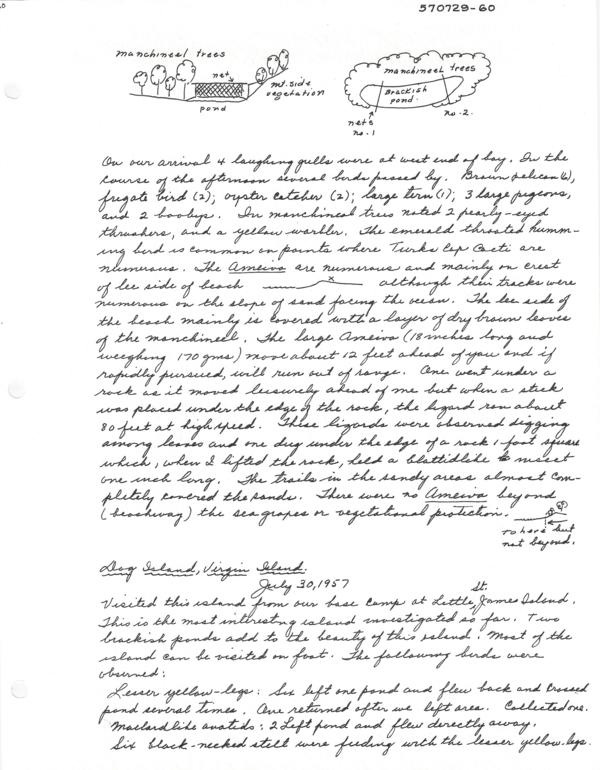 570729-60
manchineel trees
net
pond
mt. side
vegetation
manchineel trees
Brackish
pond.
net's
no. 1
no. 2.
On our arrival 4 laughing gulls were at west end of bay. In the
course of the afternoon several birds passed by. Brown pelican (6),
frigate bird (2); oyster catcher (2); large tern (1); 3 large pigeons,
and 2 boobys. In manchineal trees noted 2 pearly-eyed
thrushers, and a yellow warbler. The emerald throated humm-
ing bird is common on points where Turks Cap Cacti are
numerous. The Ameiva are numerous and mainly on crest
of lee side of beach x although their tracks were
numerous on the slope of sand facing the ocean. The lee side of
the beach mainly is covered with a layer of dry brown leaves
of the manchineel. The large Ameiva (18 inches long and
weighing 170 gms) move about 12 feet ahead of you and if
rapidly pursued, will run out of range. One went under a
rock as it moved leisurely ahead of me but when a stick
was placed under the edge of the rock, the lizard ran about
80 feet at high speed. These lizards were observed digging
among leaves and one dug under the edge of a rock 1 foot square
which, when I lifted the rock, held a blattidlike insect
one inch long. The trails in the sandy areas almost com-
pletely covered the sands. There were no Ameiva beyond
(beachway) the sea grapes or vegetational protiction.
To here but
not beyond.
Dog Island, Virgin Island.
July 30, 1957
Visited this island from our base camp at Little St. James Island.
This is the most interesting island investigated so far. Two
brackish ponds add to the beauty of this island. Most of the
island can be visited on foot. The following birds were
observed:
Lesser yellow-legs: Six left one pond and flew back and crossed
pond several times. One returned after we left area. Collected one.
Mallardlike anatids: 2 Left pond and flew derectly away.
Six black-necked stilt were feeding with the lesser yellow-legs.